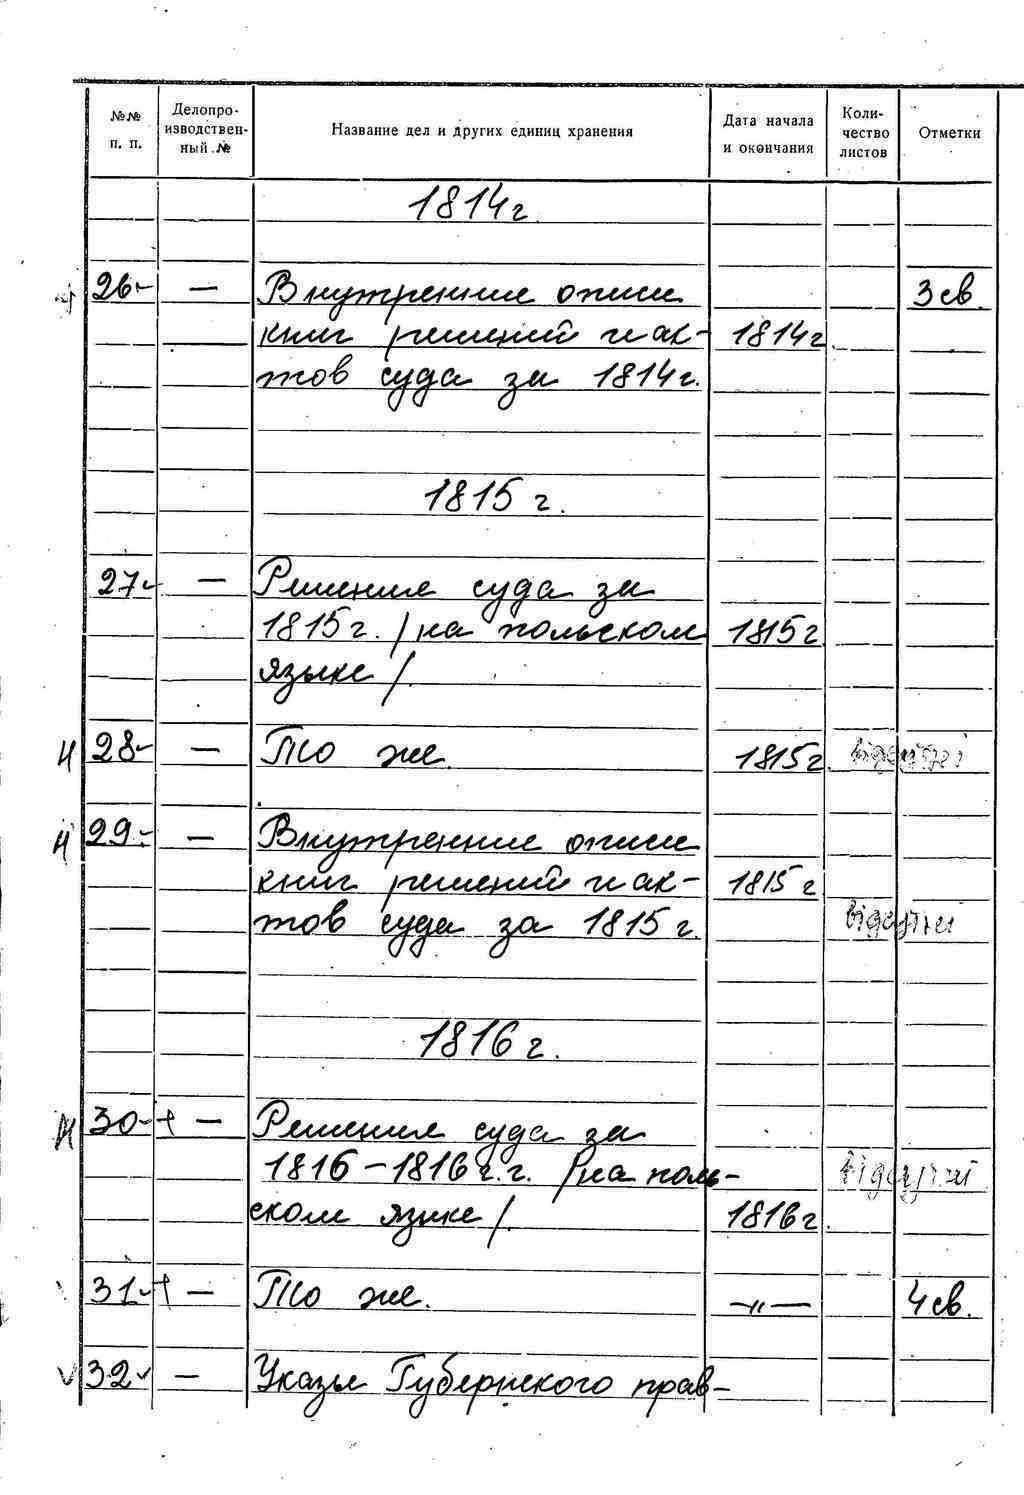 №№ п. п. Делопро- изводствен- ный № Название дел и других единиц хранения Дата начала и окончания Коли- чество листов Отметки
1814 г.
26 — Внутренние описи 3 св.
книг решений и ак- 1814 г.
тов суда за 1814 г.
1815 г.
27 — Решение суда за
1815 г. /на польском 1815 г.
языке/.
Н 28 — То же. 1815 г.
Н 29 — Внутренние описи
книг решений и ак- 1815 г.
тов суда за 1815 г.
1816 г.
Н 30 + — Решения суда за
1816 – 1816 г.г. /на поль-
ском языке/. 1816 г.
31 + — То же. —„— 4 св.
V 32 — Указы Губернского прав-